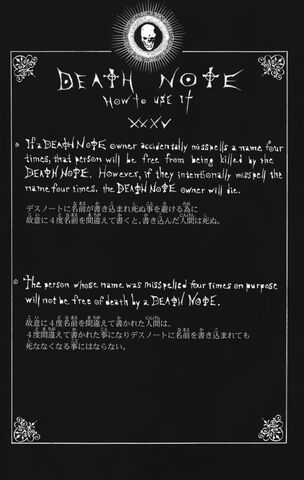 DEATH NOTE
HOW TO USE IT
XXXV
If a DEATH NOTE owner accidentally misspells a name four
times, that person will be free from being killed by the
DEATH NOTE. However, if they intentionally misspell the
name four times, the DEATH NOTE owner will die.
デスノートに名前が書き込まれ死ぬ事を避ける為に
故意に4度名前を間違えて書くと、書き込んだ人間は死ぬ。
The person whose name was misspelled four times on purpose
will not be free of death by a DEATH NOTE.
故意に4度名前を間違えて書かれた人間は、
4度間違えて書かれた事になりデスノートに名前を書き込まれても
死ななくなる事にはならない。